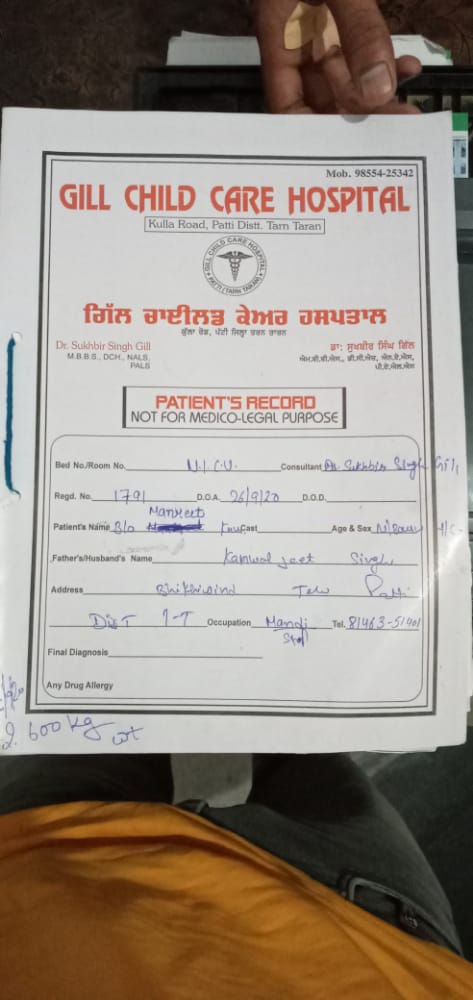 Mob. 98554-25342
GILL CHILD CARE HOSPITAL
Kulla Road, Patti Distt. Tarn Taran
GILL CHILD CARE HOSPITAL
PATTI (TARN TARAN)
ਗਿੱਲ ਚਾਈਲਡ ਕੇਅਰ ਹਸਪਤਾਲ
ਕੁੱਲਾ ਰੋਡ, ਪੱਟੀ ਜ਼ਿਲ੍ਹਾ ਤਰਨ ਤਾਰਨ
Dr. Sukhbir Singh Gill
M.B.B.S., DCH., NALS,
PALS
ਡਾ: ਸੁਖਬੀਰ ਸਿੰਘ ਗਿੱਲ
ਐਮ.ਬੀ.ਬੀ.ਐਸ., ਡੀ.ਸੀ.ਐਚ, ਐਨ.ਏ.ਐਲ.ਐਸ,
ਪੀ.ਏ.ਐਲ.ਐਸ
PATIENT'S RECORD
NOT FOR MEDICO-LEGAL PURPOSE
Bed No./Room No. N.I.C.U. Consultant Dr. Sukhbir Singh Gill
Regd. No. 1791 D.O.A. 26/9/20 D.O.D.
Manjeet
Patient's Name B/o Kaur Cast Age & Sex
Father's/Husband's Name Kanwal jeet Singh
Address Bhikhiwind Teh Patti
Dist T-T Occupation Mandi Tel. 81463-51401
Final Diagnosis
Any Drug Allergy
2.600 kg wt